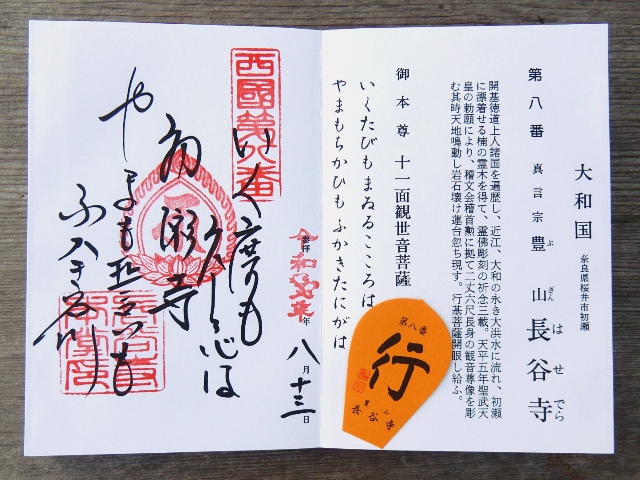 大和国 奈良県桜井市初瀬
第八番 真言宗 豊山 長谷寺
ぶ ざん は せ でら
開基徳道上人諸国を遍歴し、近江、大和の永き大洪水に流れ、初瀬
に漂着せる楠の霊木を得て、霊佛彫刻の祈念三載。天平五年聖武天
皇の勅願により、稽文会稽首勲に拠て二丈六尺長身の観音尊像を彫
む其時天地鳴動し岩石壊け運台忽ち現す。行基菩薩開眼し給ふ。
御本尊 十一面観世音菩薩
いくたびもまゐるこころは
やまもちかひも ふかきたにがは
第八番
行
豊山
長谷寺
西國第八番
参拝
令和
年
八月十三日
いく度も
心は
寺
やまも